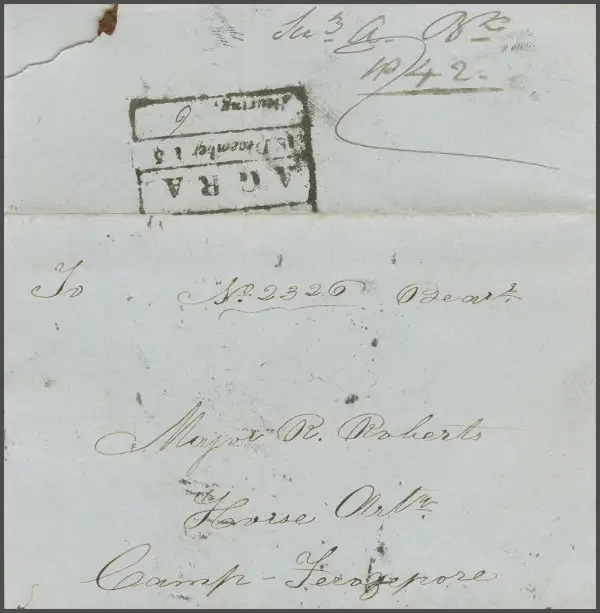 1842.
AGRA
December
Bearing,
To No. 2326 Bearg
Major R. Roberts
Horse Arty
Camp - Ferozepore